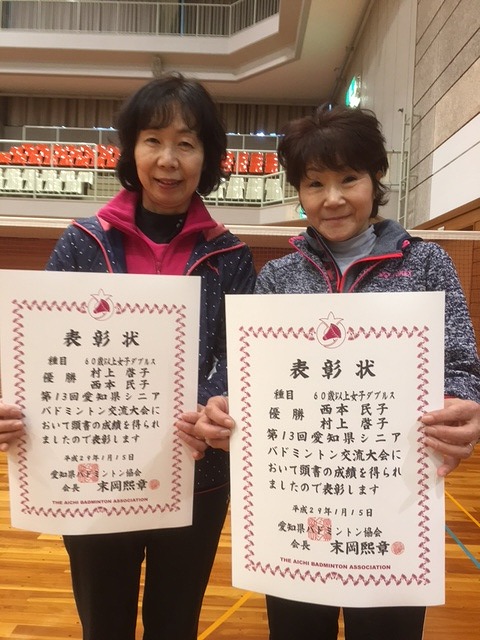 表彰状
種目 60歳以上女子ダブルス
優勝 村上 啓子
西本 民子
第13回愛知県シニア
バドミントン交流大会に
おいて頭書の成績を得られ
ましたので表彰します
平成29年1月15日
愛知県バドミントン協会
会長 末岡熙章
THE AICHI BADMINTON ASSOCIATION
表彰状
種目 60歳以上女子ダブルス
優勝 西本 民子
村上 啓子
第13回愛知県シニア
バドミントン交流大会に
おいて頭書の成績を得られ
ましたので表彰します
平成29年1月15日
愛知県バドミントン協会
会長 末岡熙章
THE AICHI BADMINTON ASSOCIATION